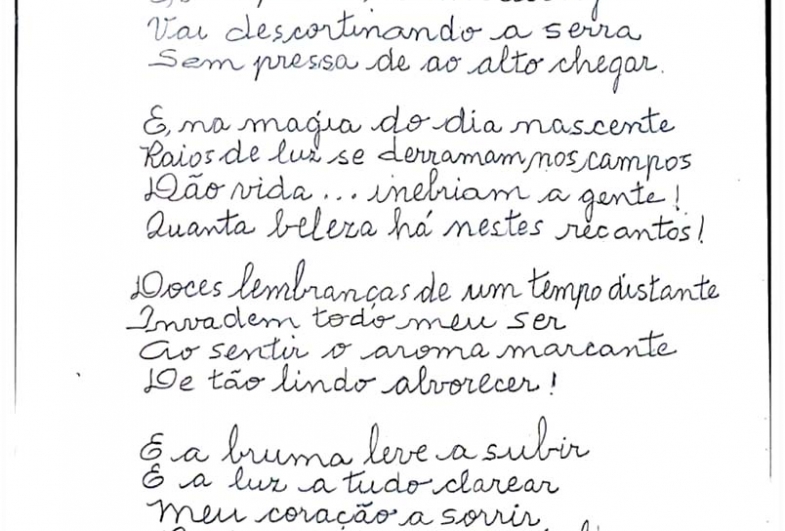 Vai descortinando a serra
Sem pressa de ao alto chegar.
E, na magia do dia nascente
Raios de luz se derramam, nos campos
Dão vida... inebriam a gente!
Quanta beleza há nestes recantos!
Doces lembranças de um tempo distante
Invadem todo meu ser
Ao sentir o aroma marcante
De tão lindo alvorecer!
E a bruma leve a subir
E a luz a tudo clarear
Meu coração a sorrir,